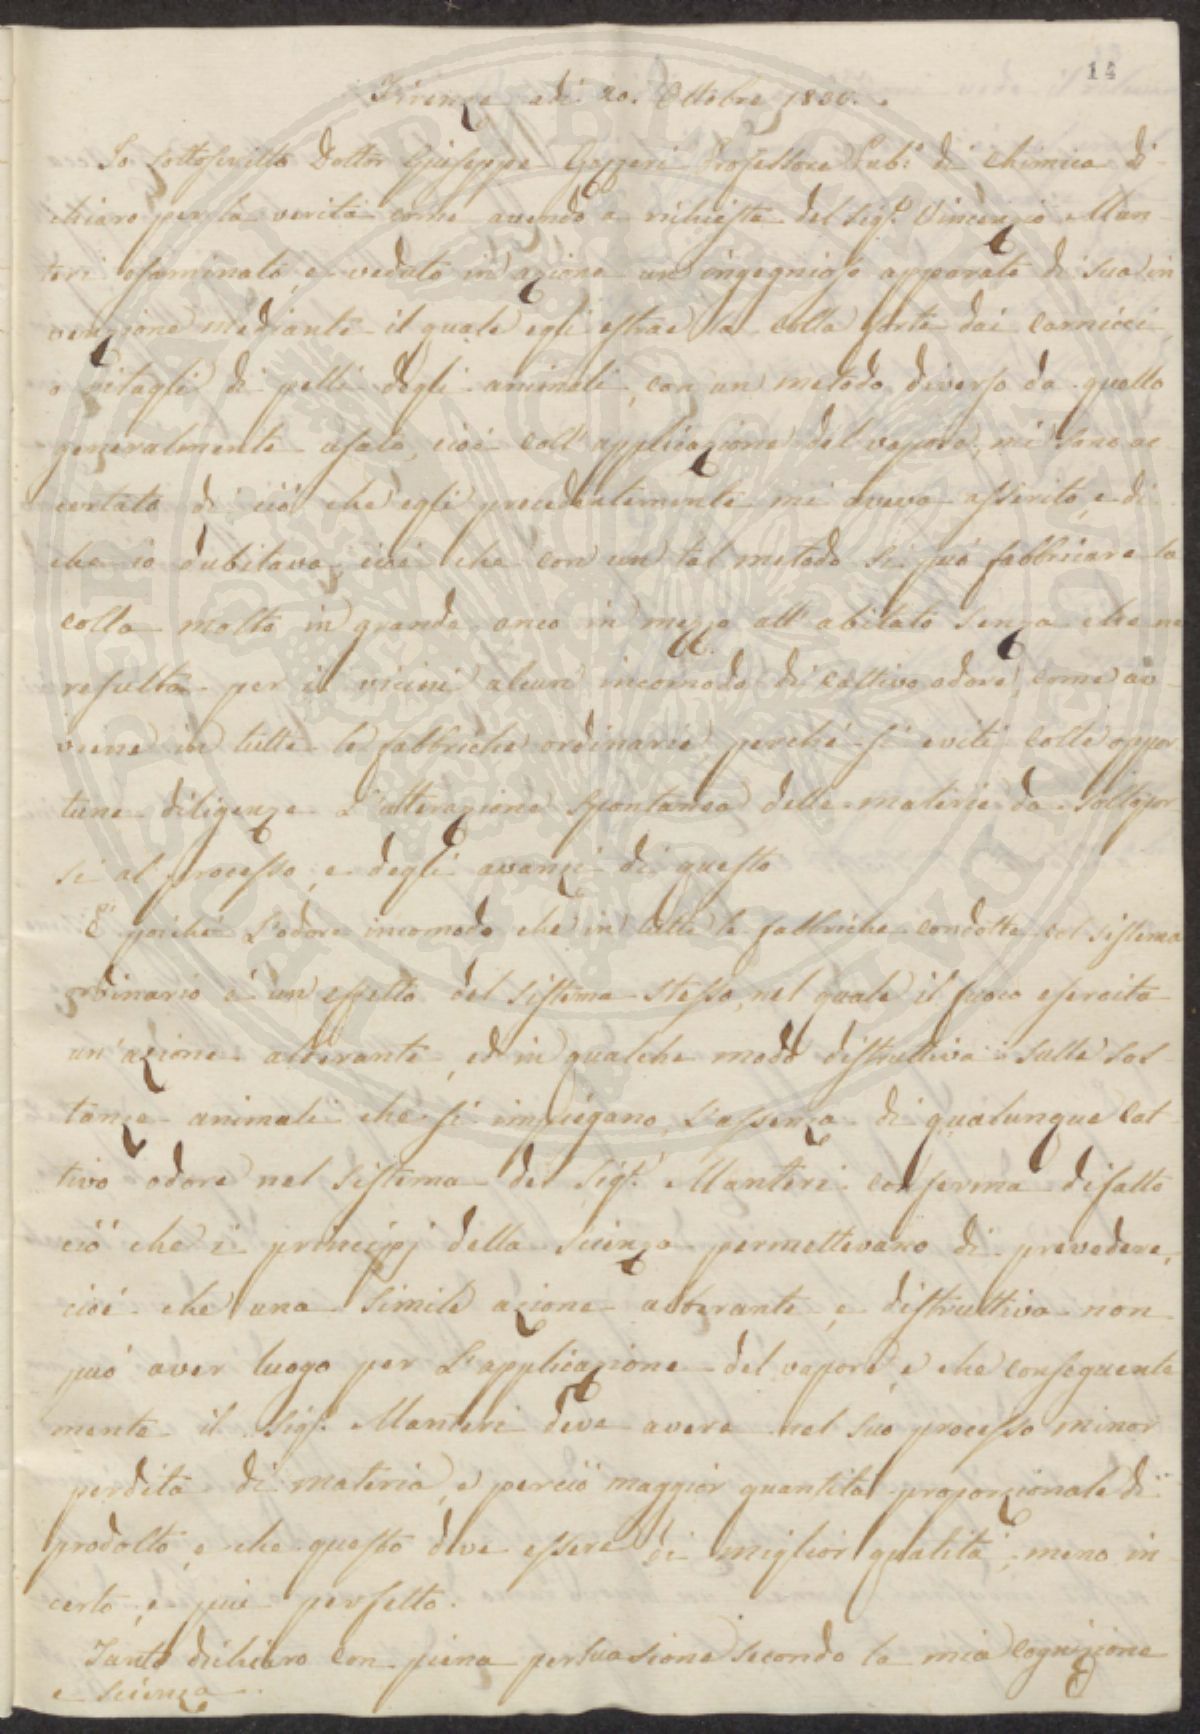 14
Firenze adi 20. Ottobre 18
Io sottoscritto Dottor Giuseppe Gazzeri Professore Pub.º di Chimica di-
chiaro per la verità come avendo a richiesta del Sig.ʳ Vincenzio Man-
teri esaminato, e veduto in azione un ingegnioso apparato di sua in
venzione mediante il quale egli estrae la colla forte dai carnicci,
o ritagli di pelli degli animali, con un metodo diverso da quello
generalmente usato, cioè coll'applicazione del vapore, mi sono ac-
certato di ciò che egli precedentemente mi aveva asserito, e di
che io dubitava, cioè che con un tal metodo si può fabbricare la
colla molto in grande anco in mezzo all'abitato senza che ne
resulti per i vicini alcun incomodo di cattivo odore, come av-
viene in tutte le fabbriche ordinarie, perché si eviti colle oppor
tune diligenze L'alterazione spontanea delle materie da sottopor
si al processo, e degli avanzi di questo
E poiché L'odore incomodo che in tutte le fabbriche condotte col sistema
ordinario è un effetto del sistema stesso, nel quale il fuoco esercita
un'azione alterante, ed in qualche modo distruttiva sulle sos-
tanze animali che si impiegano, L'assenza di qualunque cat-
tivo odore nel sistema del Sig.ʳ Manteri conferma difatto
ciò che i principj della scienza permettevano di prevedere,
cioè che una simile azione alterante, e distruttiva non
può aver luogo per L'applicazione del vapore, e che conseguente
mente il Sig.ʳ Manteri deve avere nel suo processo minor
perdita di materia, e perciò maggior quantità proporzionale di
prodotto, e che questo deve essere di miglior qualità, meno in
certo, e più perfetto.
Tanto dichiaro con piena persuasione secondo la mia cognizione
e scienza.